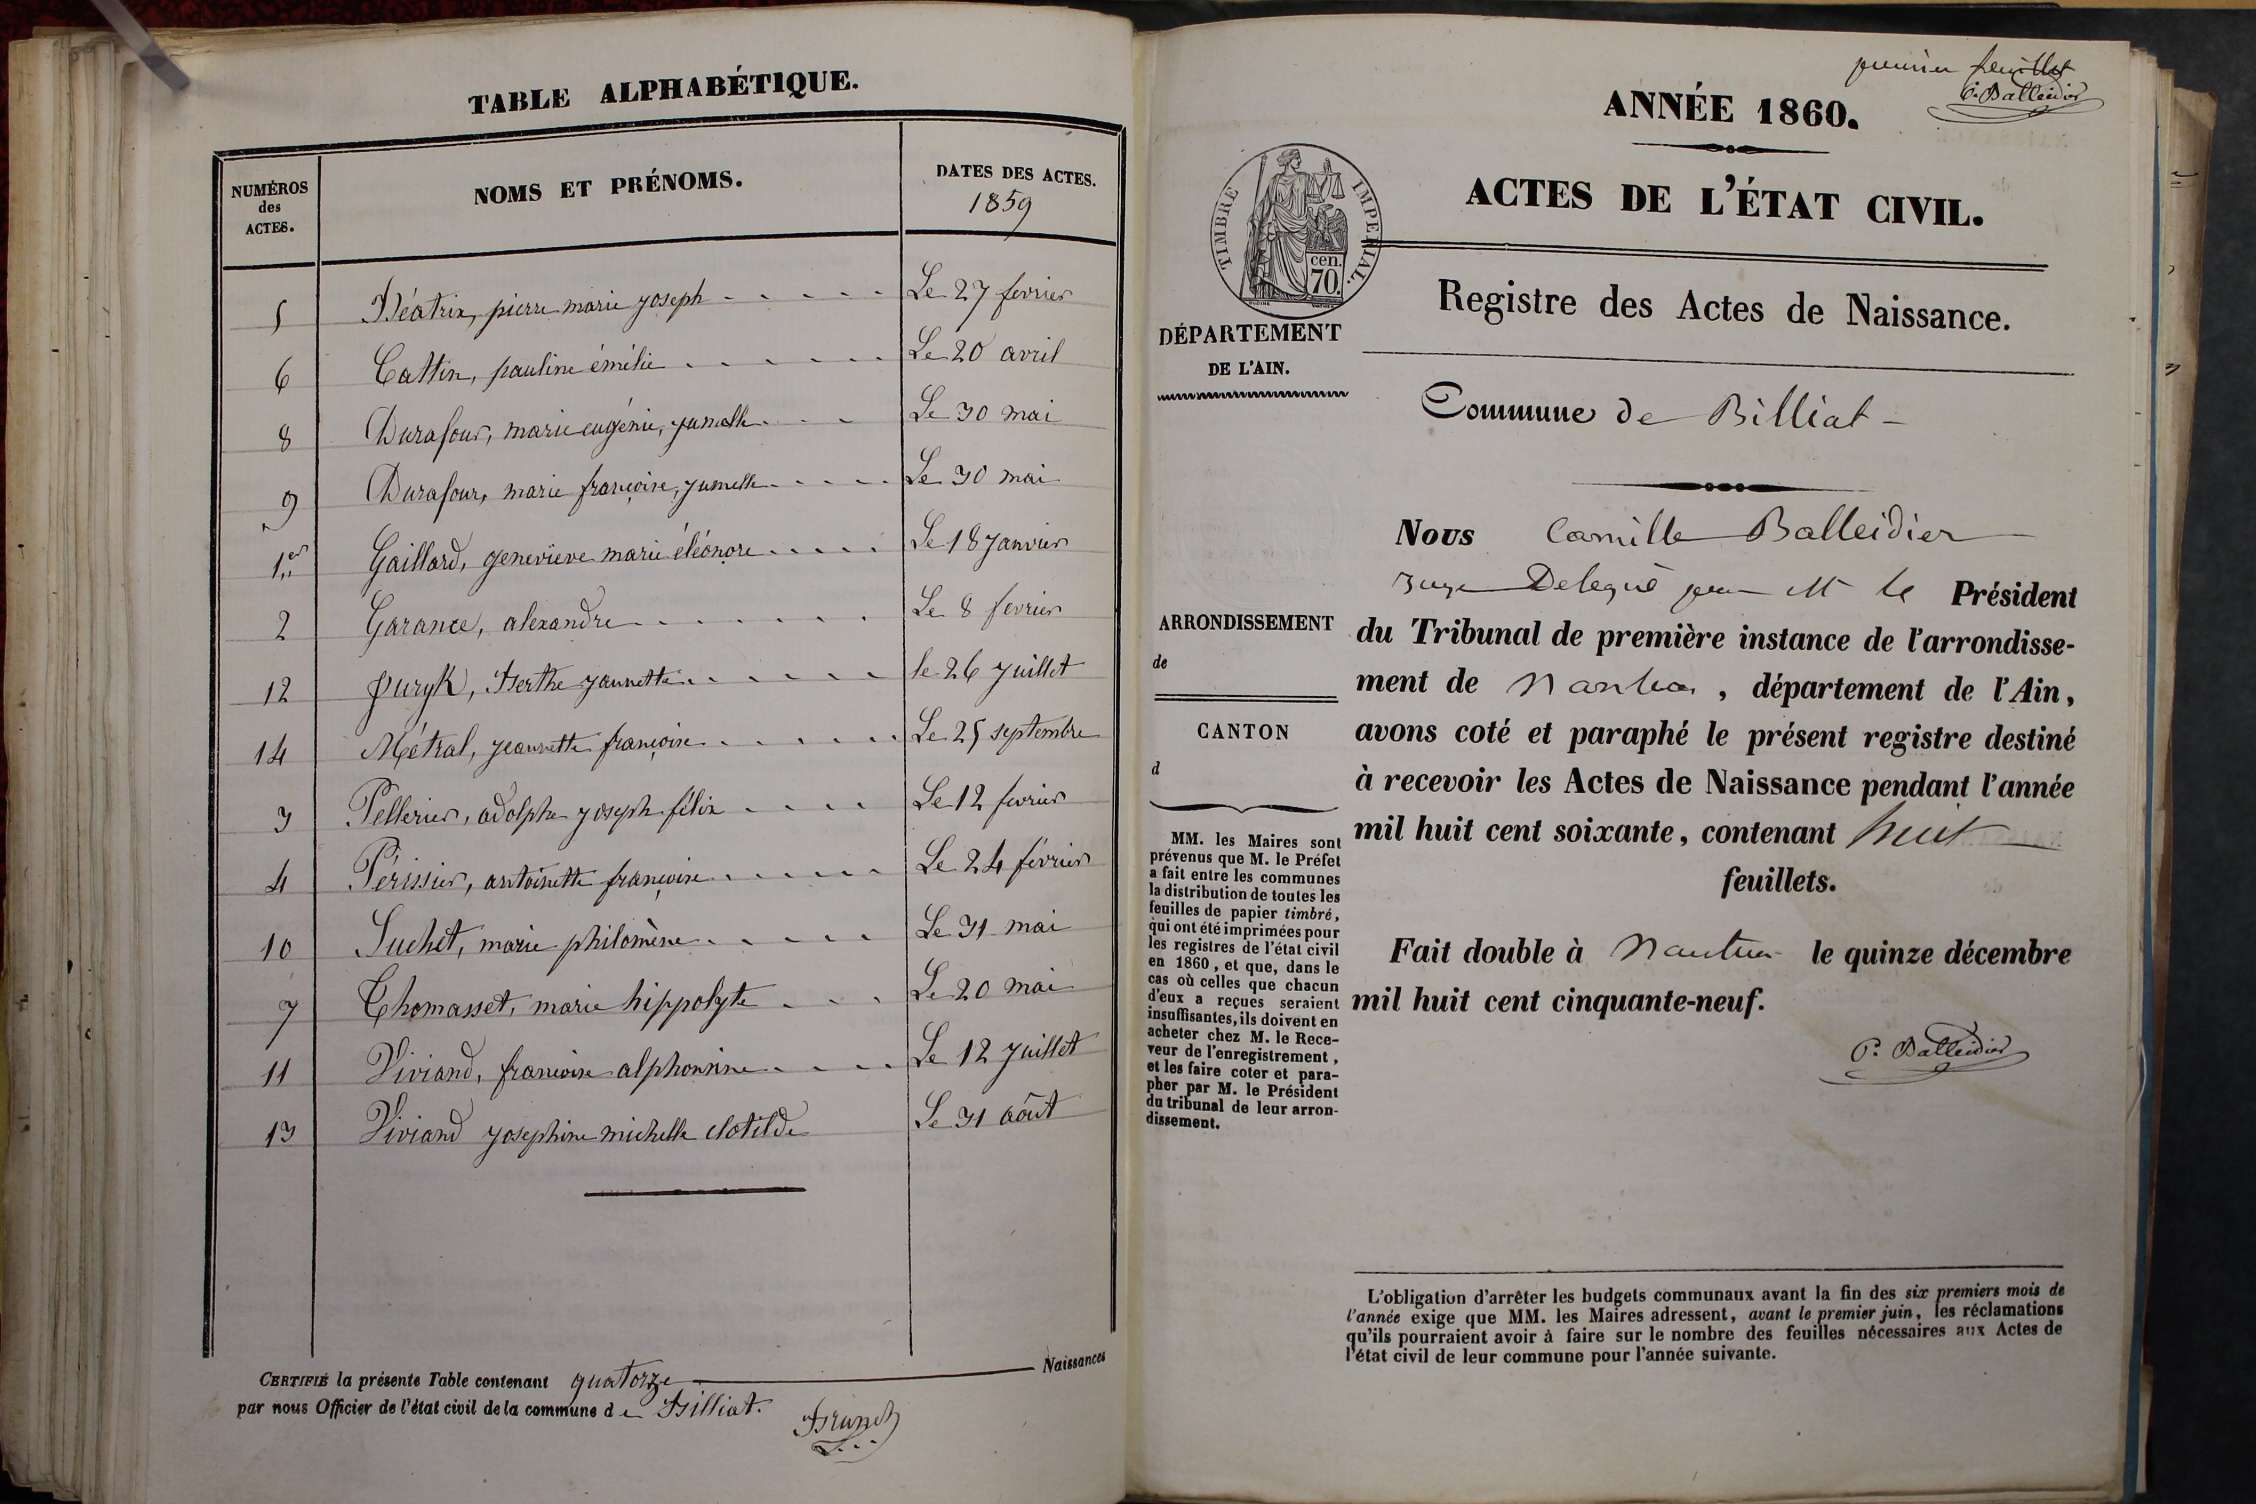 TABLE ALPHABÉTIQUE.
NUMÉROS des ACTES.
NOMS ET PRÉNOMS.
DATES DES ACTES.
1859
5 Béatrix, pierre marie joseph Le 27 février
6 Cattin, pauline émélie Le 20 avril
8 Durafour, marie eugénie, jumelle Le 30 mai
9 Durafour, marie françoise, jumelle Le 30 mai
1er Gaillard, genevieve marie éléonore Le 18 Janvier
2 Garance, alexandre Le 8 fevrier
12 Berthe jannette le 26 Juillet
14 Métral, jeannette françoise Le 25 septembre
3 Pellerier, adolphe joseph félix Le 12 fevrier
4 Périssier, antoinette françoise Le 24 février
10 Suchet, marie philomène Le 31 mai
7 Thomasset, marie hippolyte Le 20 mai
11 Viviand, françoise alphonsine Le 12 Juillet
13 Viviand josephine michelle clotilde Le 31 août
CERTIFIÉ la présente Table contenant quatorze Naissances
par nous Officier de l'état civil de la commune de Billiat.
Brunet
premier feuillet
C. Balleidier
ANNÉE 1860.
TIMBRE IMPERIAL.
cen.
70.
ACTES DE L'ÉTAT CIVIL.
Registre des Actes de Naissance.
DÉPARTEMENT
DE L'AIN.
Commune de Billiat
ARRONDISSEMENT
de
CANTON
d
MM. les Maires sont
prévenus que M. le Préfet
a fait entre les communes
la distribution de toutes les
feuilles de papier timbré,
qui ont été imprimées pour
les registres de l'état civil
en 1860, et que, dans le
cas où celles que chacun
d'eux a reçues seraient
insuffisantes, ils doivent en
acheter chez M. le Rece-
veur de l'enregistrement,
et les faire coter et para-
pher par M. le Président
du tribunal de leur arron-
dissement.
Nous Camille Balleidier
Juge Delegué pour M le Président
du Tribunal de première instance de l'arrondisse-
ment de Nantua, département de l'Ain,
avons coté et paraphé le présent registre destiné
à recevoir les Actes de Naissance pendant l'année
mil huit cent soixante, contenant huit
feuillets.
Fait double à Nantua le quinze décembre
mil huit cent cinquante-neuf.
C. Balleidier
L'obligation d'arrêter les budgets communaux avant la fin des six premiers mois de
l'année exige que MM. les Maires adressent, avant le premier juin, les réclamations
qu'ils pourraient avoir à faire sur le nombre des feuilles nécessaires aux Actes de
l'état civil de leur commune pour l'année suivante.